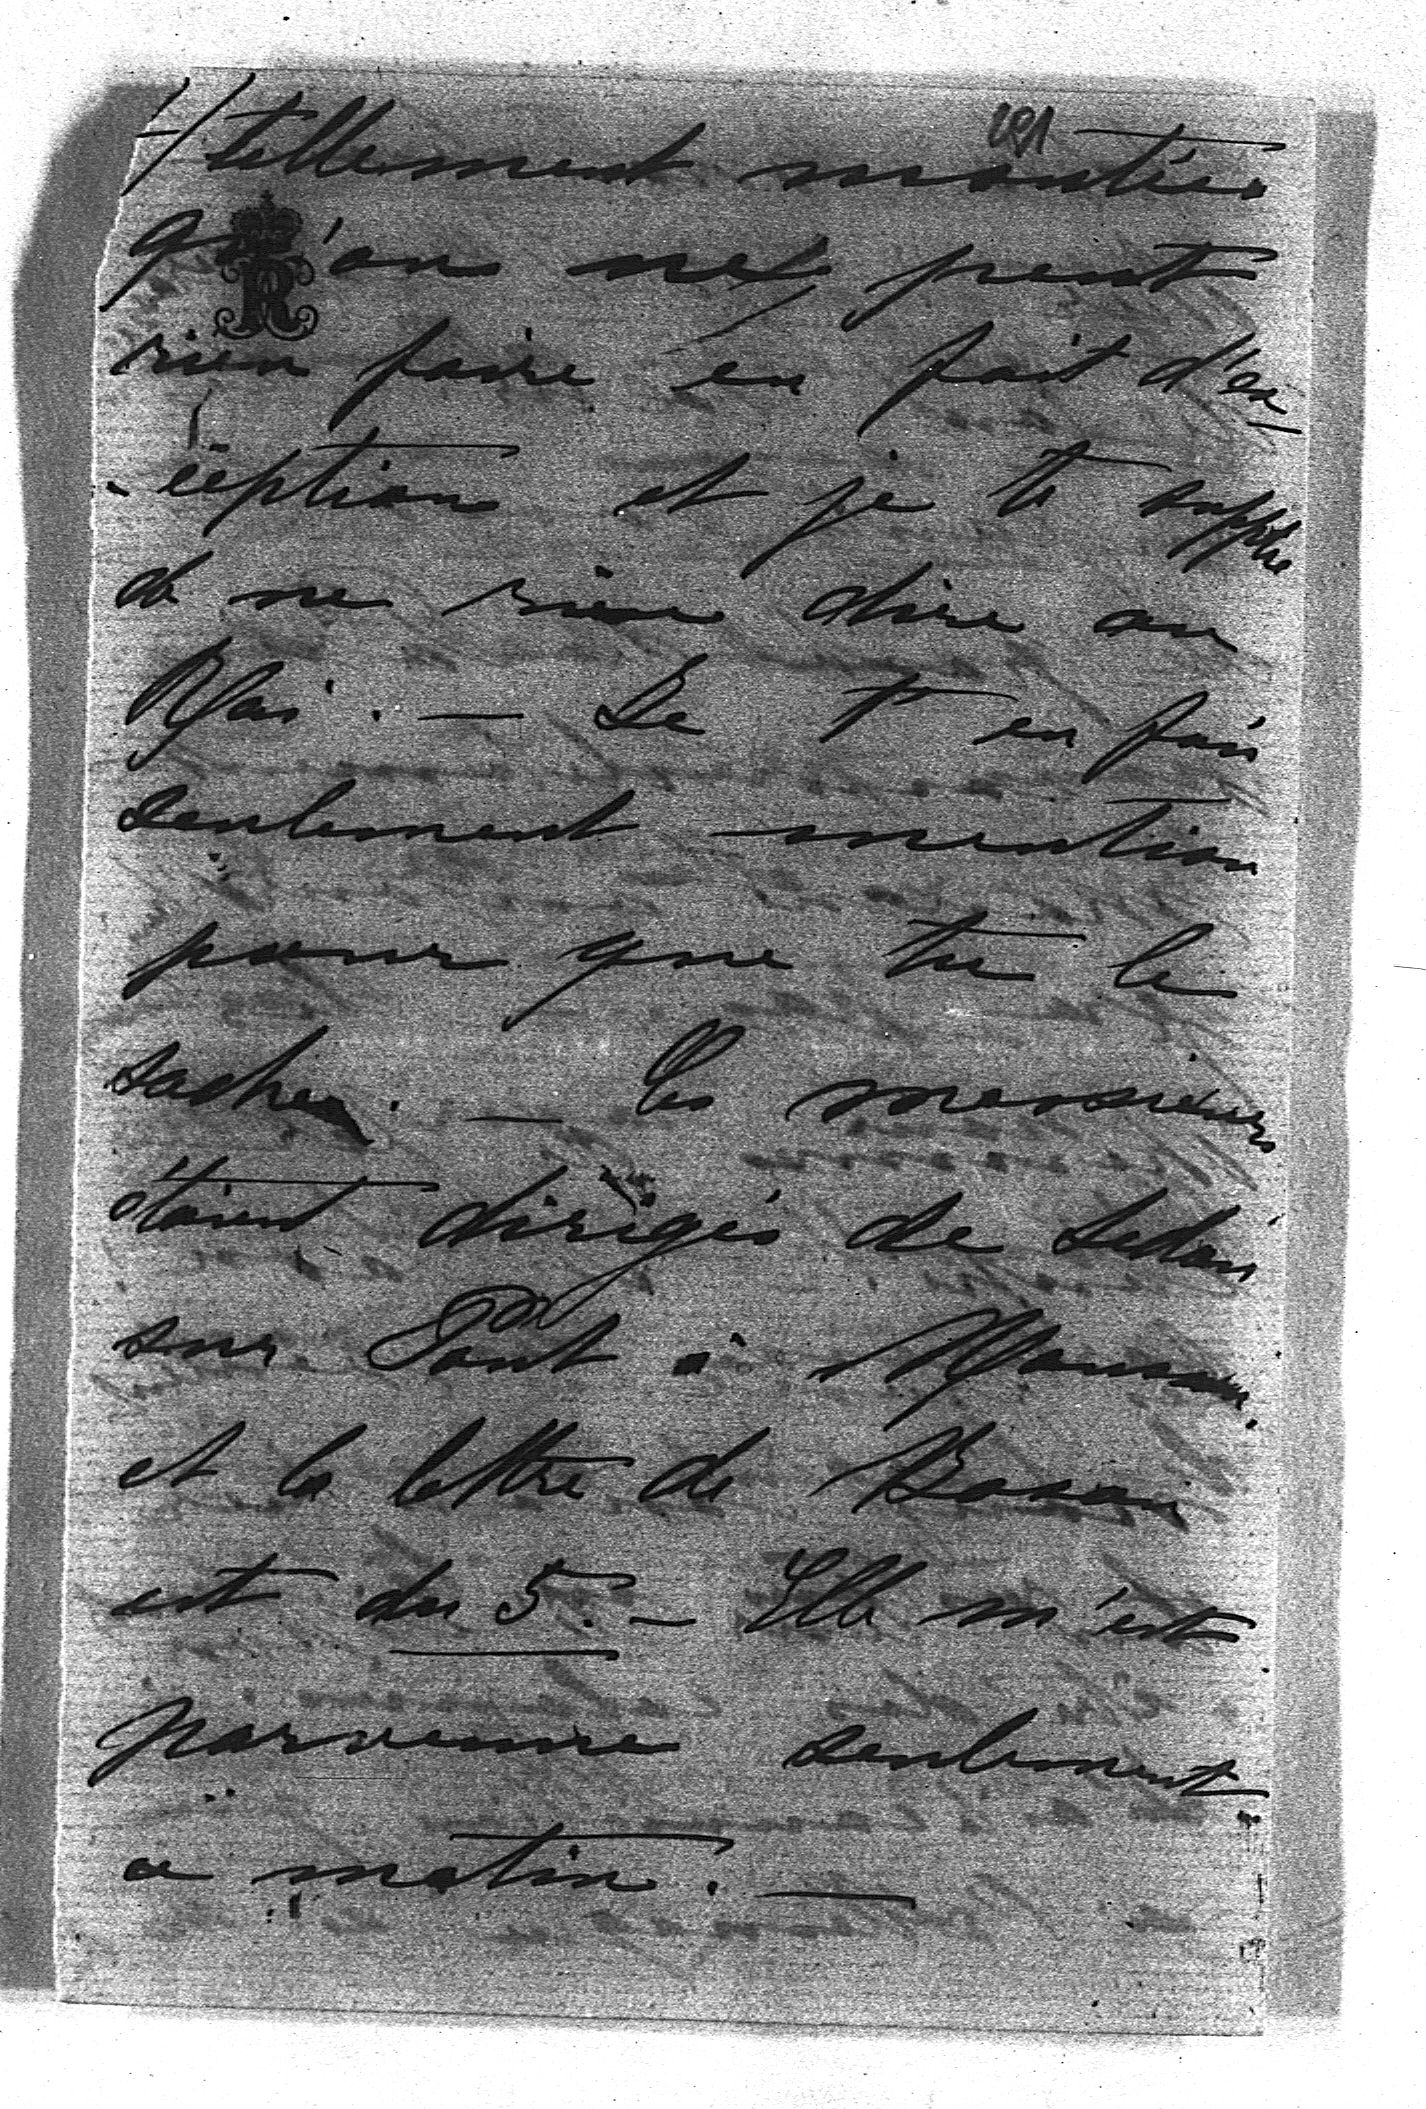 191
tellement montées
qu'on ne peut
rien faire en fait d'ex
-ception et je te supplie
de ne rien dire au
Roi. — Je t'en fais
seulement mention
pour que tu le
saches. — Ces messieurs
étaient dirigés de Sedan
sur Pont à Mousson.
et la lettre de
est du 5. — Elle m'est
parvenue seulement
ce matin. —